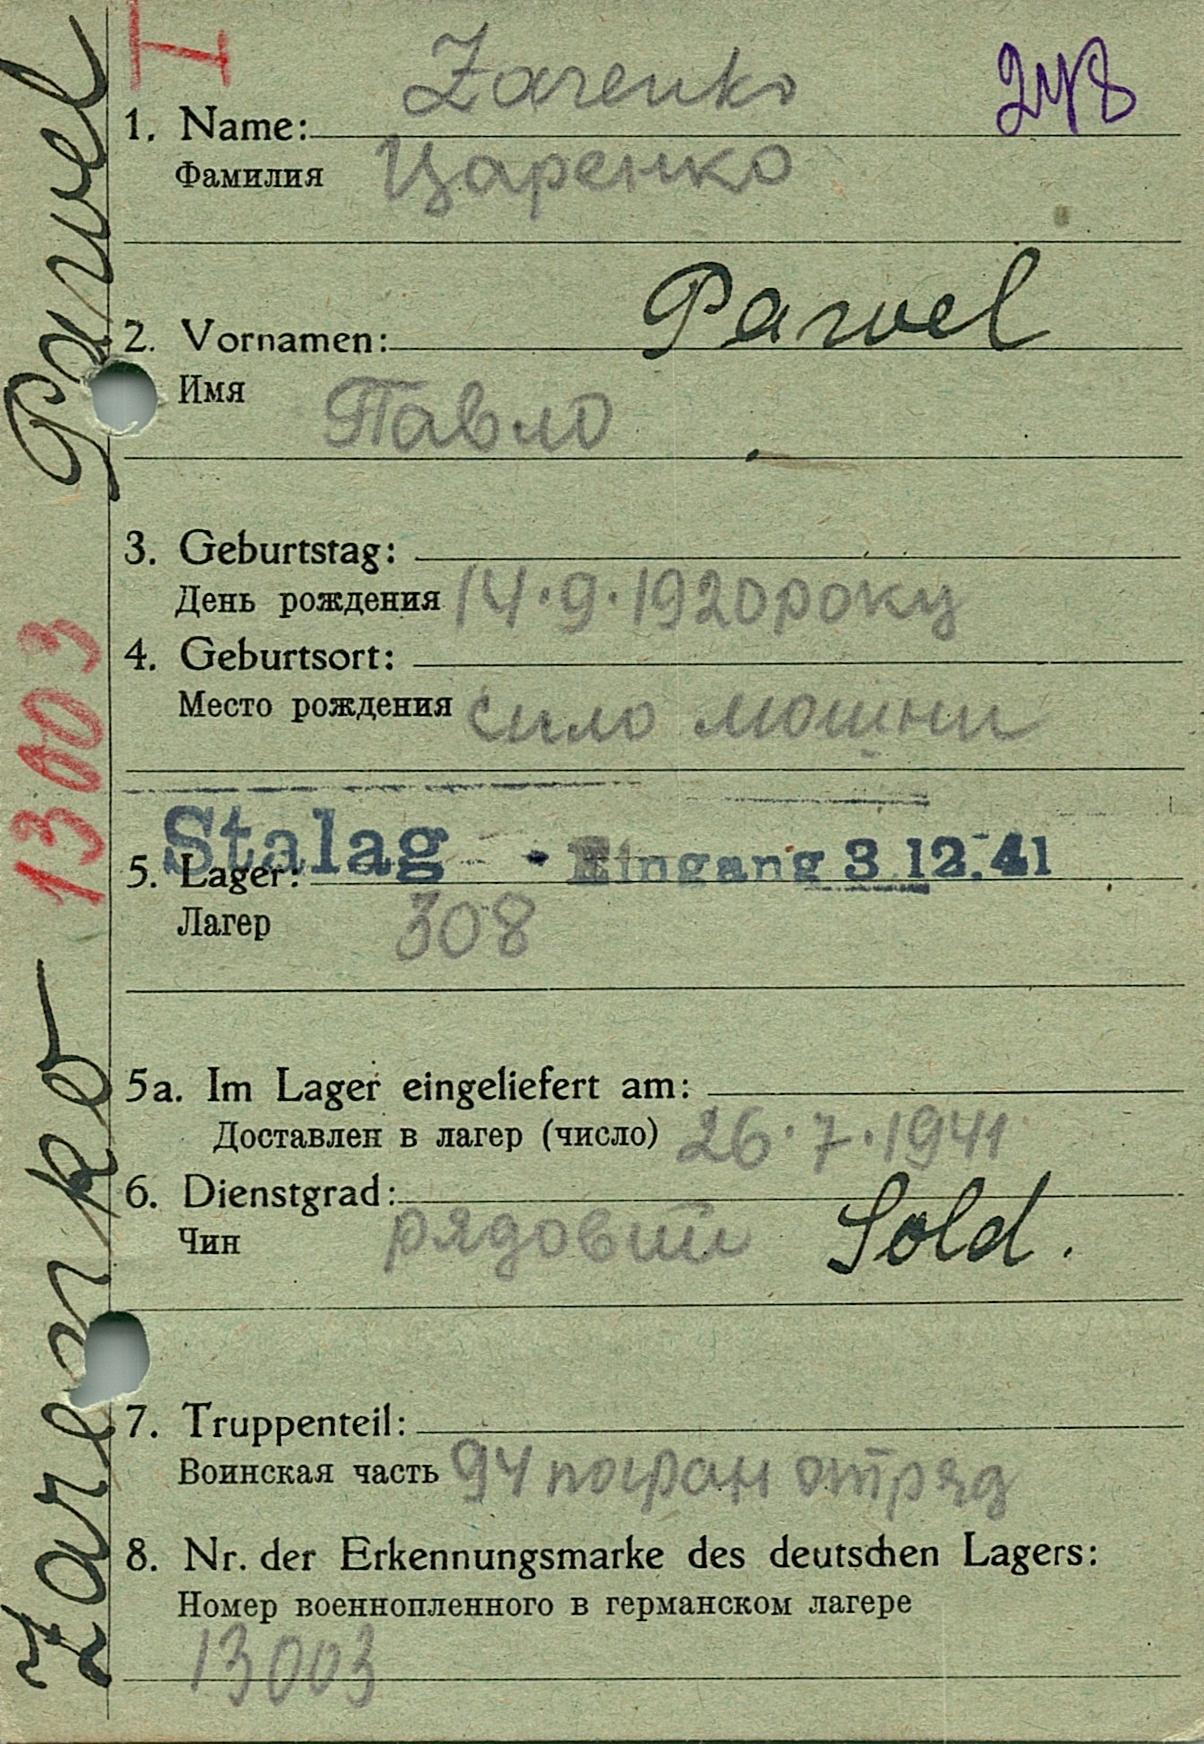 I
Zarenko
248
1. Name:
Фамилия Царенко
Pawel
2. Vornamen:
Имя Павло
3. Geburtstag:
День рождения 14.9.1920 року
4. Geburtsort:
Место рождения сило мошни
Stalag - Eingang 3.12.41
5. Lager:
Лагер 308
5a. Im Lager eingeliefert am:
Доставлен в лагер (число) 26.7.1941
6. Dienstgrad: Sold.
Чин рядовий
7. Truppenteil:
Воинская часть 94 погран отряд
8. Nr. der Erkennungsmarke des deutschen Lagers:
Номер военнопленного в германском лагере
13003
Zarenko 13003 Pawel